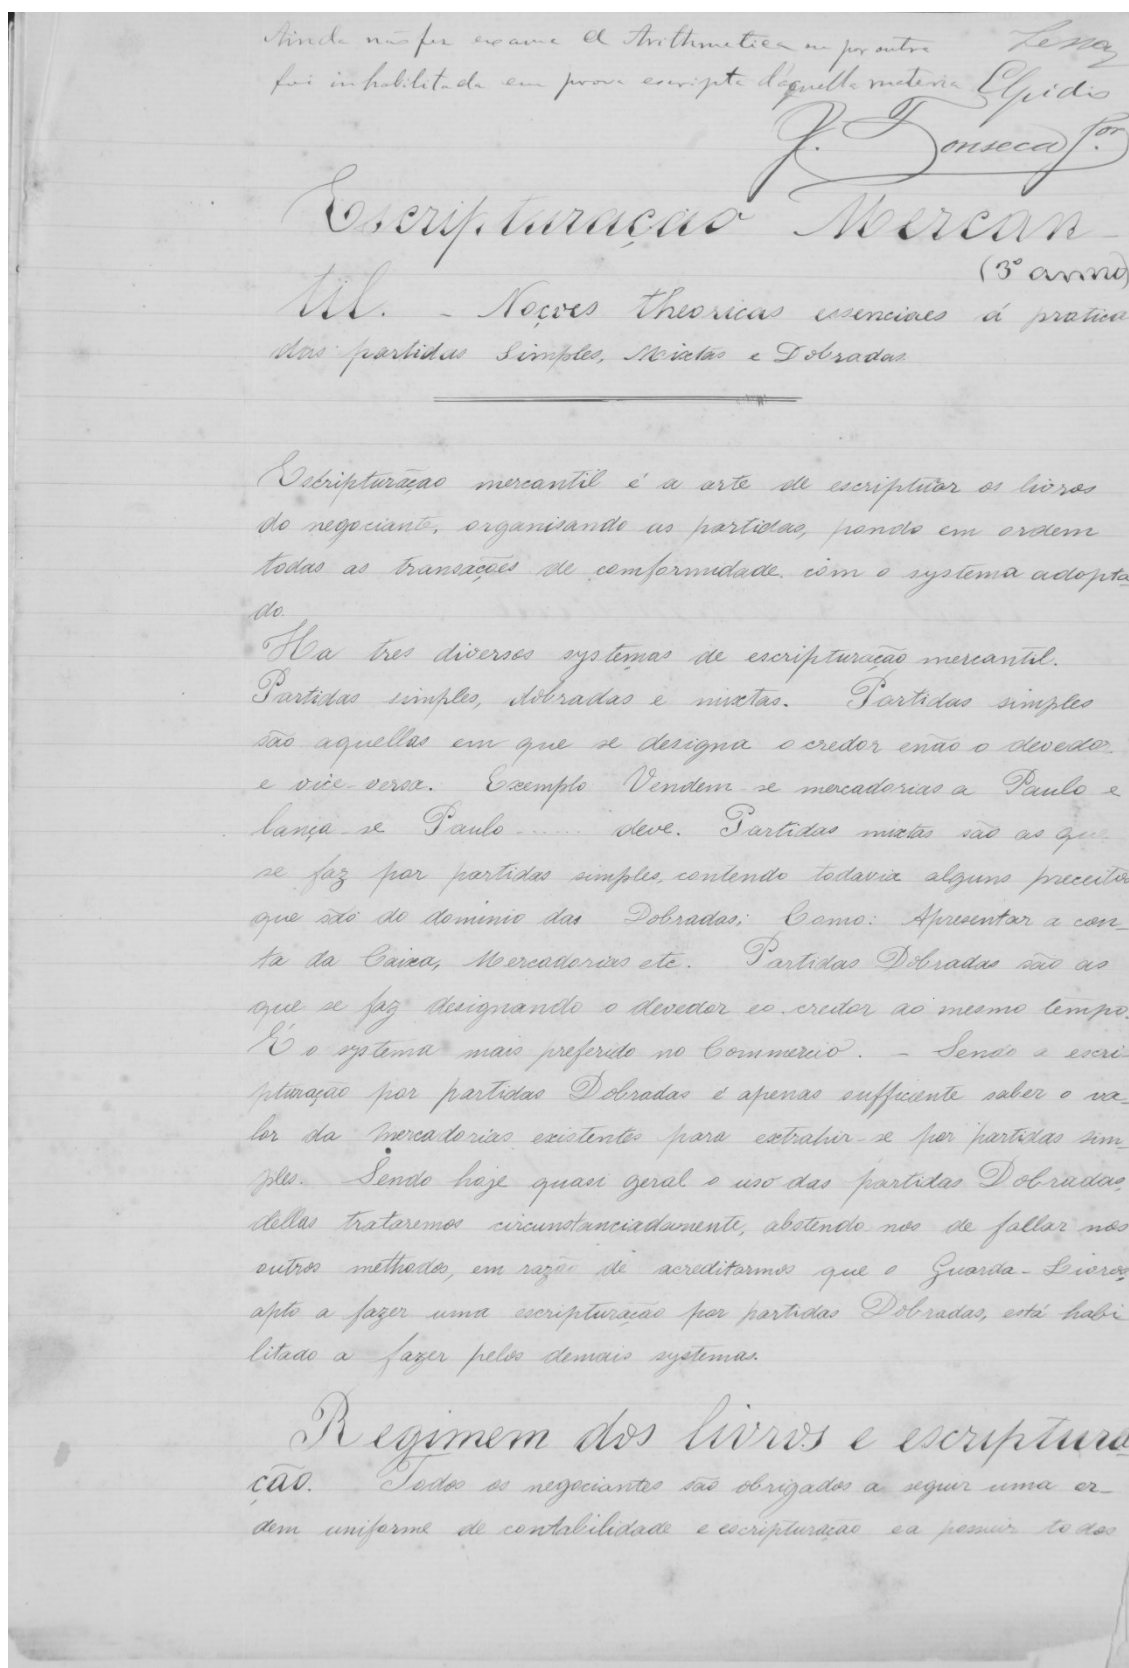 Ainda não fez exame d Arithmetica ou por outra
foi inhabilitada em prova escripta d'aquella materia Elpidio
J. Fonseca
Escripturação Mercan-
(3º anno)
til. - Noções theoricas essenciaes á pratica
das partidas Simples, Mixtas e Dobradas
Escripturação mercantil é a arte de escripturar os livros
do negociante, organisando as partidas, pondo em ordem
todas as transações de comformidade com o systema adopta-
do.
Ha tres diversos systemas de escripturação mercantil.
Partidas simples, dobradas e mixtas. Partidas simples
são aquellas em que se designa o credor enão o devedor
e vice-versa. Exemplo Vendem-se mercadorias a Paulo e
lança-se Paulo ...... deve. Partidas mixtas são as que
se faz por partidas simples, contendo todavia alguns preceitos
que são do dominio das Dobradas; Como: Apresentar a con-
ta da Caixa, Mercadorias etc. Partidas Dobradas são as
que se faz designando o devedor eo credor ao mesmo tempo.
É o systema mais preferido no Commercio. - Sendo a escri-
pturação por partidas Dobradas é apenas sufficiente saber o va-
lor da mercadorias existentes para extrahir-se por partidas sim-
ples. Sendo hoje quasi geral o uso das partidas Dobradas,
dellas trataremos circunstanciadamente, abstendo nos de fallar nos
outros methodos, em razão de acreditarmos que o Guarda-Livros,
apto a fazer uma escripturação por partidas Dobradas, está habi
litado a fazer pelos demais systemas.
Regimem dos livros e escriptura-
ção. Todos os negociantes são obrigados a seguir uma or-
dem uniforme de contabilidade e escripturação ea possuir todos